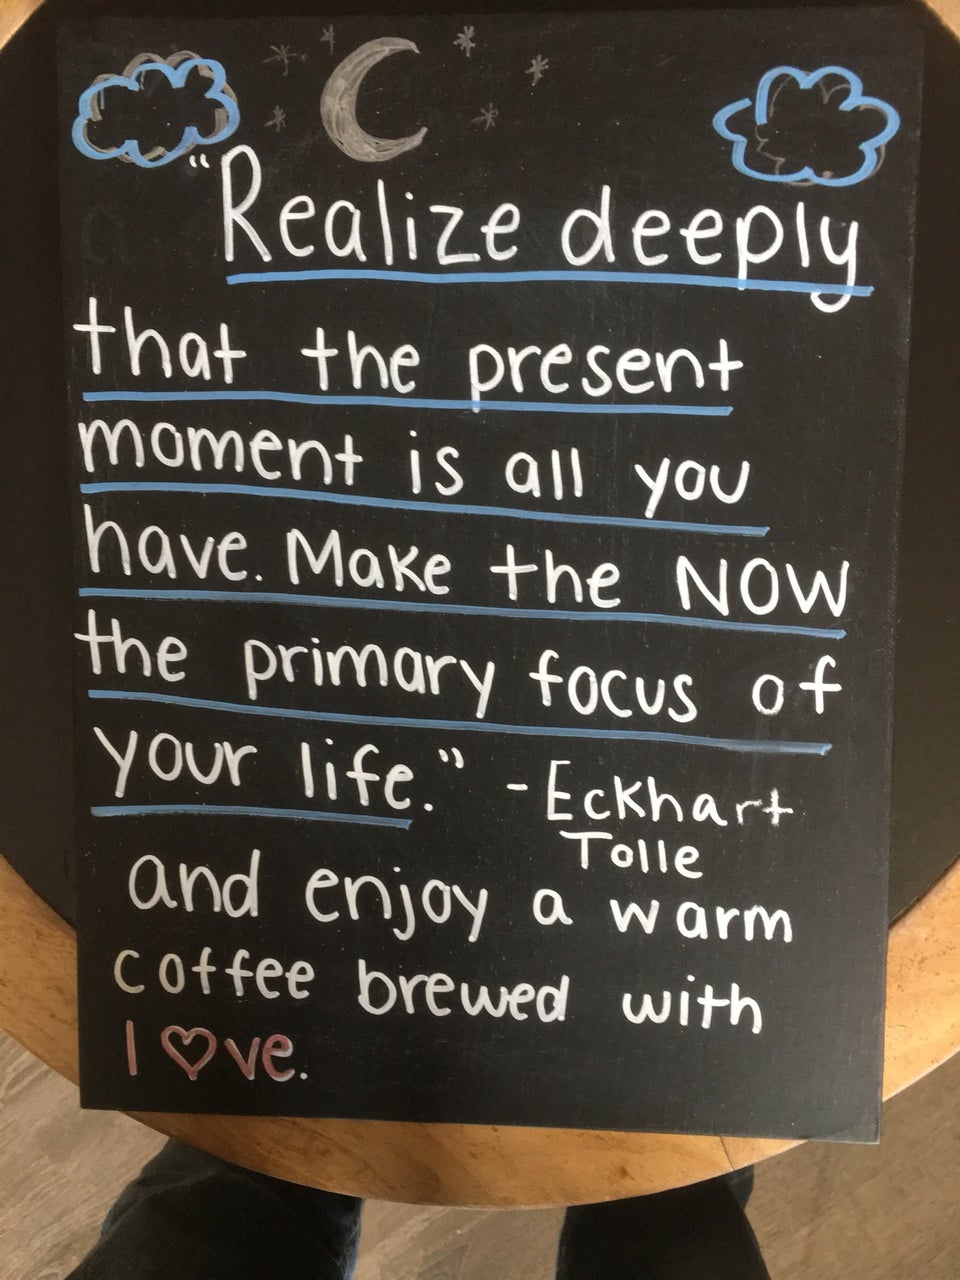 "Realize deeply
that the present
moment is all you
have. Make the NOW
the primary focus of
your life." -Eckhart
Tolle
and enjoy a warm
coffee brewed with
l♡ve.